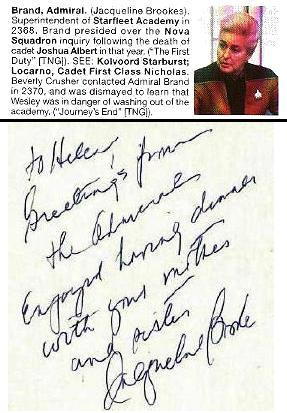 Brand, Admiral. (Jacqueline Brookes).
Superintendent of Starfleet Academy in
2368. Brand presided over the Nova
Squadron inquiry following the death of
cadet Joshua Albert in that year. ("The First
Duty" [TNG]). SEE: Kolvoord Starburst;
Locarno, Cadet First Class Nicholas.
Beverly Crusher contacted Admiral Brand
in 2370, and was dismayed to learn that
Wesley was in danger of washing out of the
academy. ("Journey's End" [TNG]).
To Helen
Greetings from
the Admiral
Enjoyed having dinner
with your mother
and sister
Jacqueline Brookes